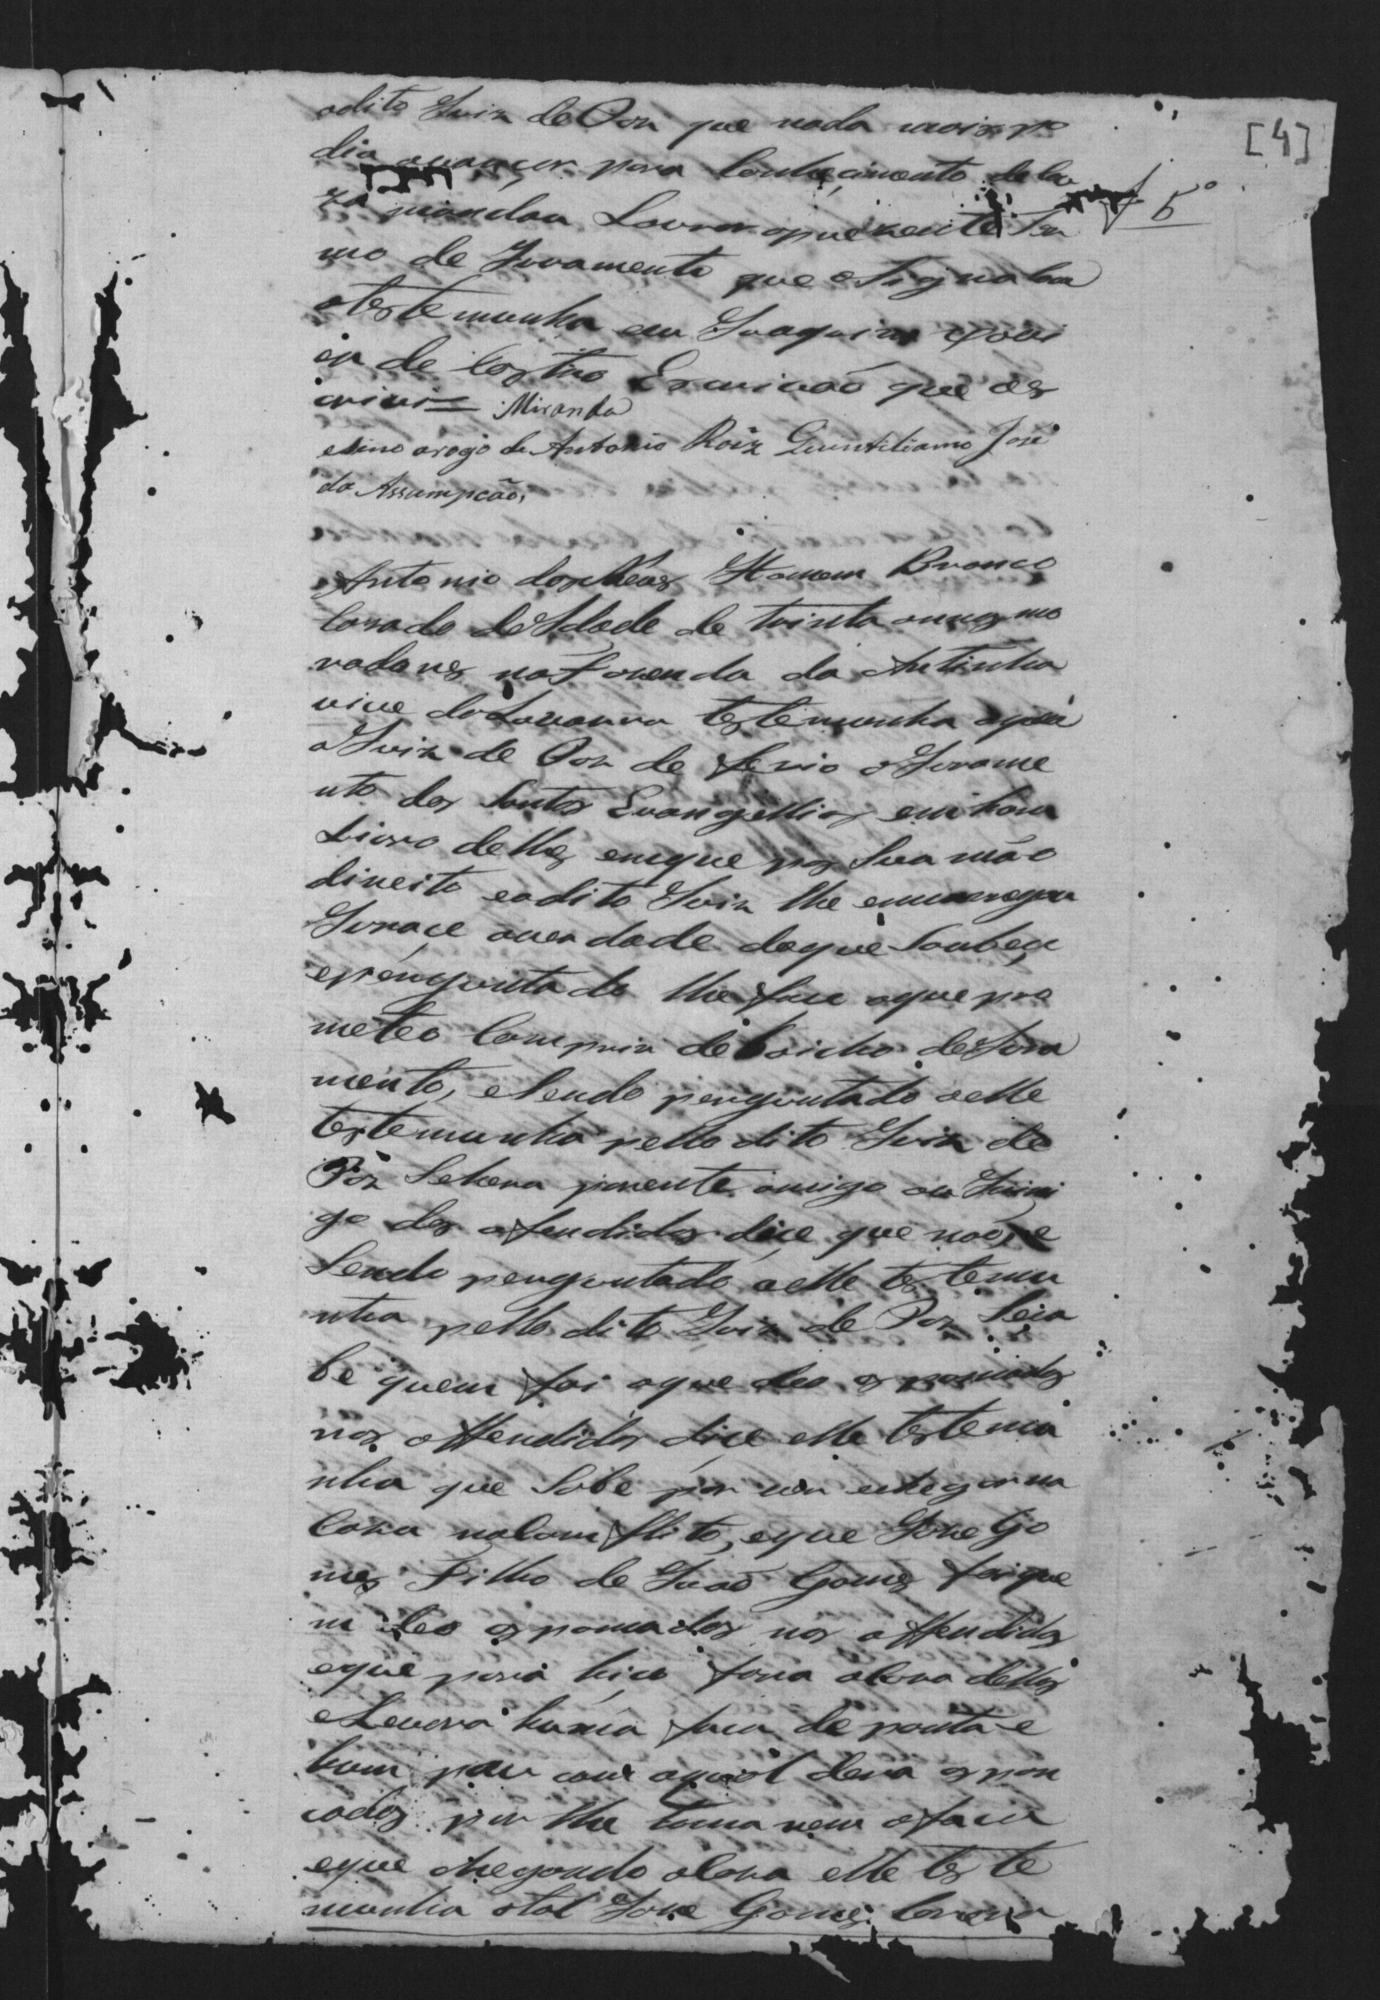 [4]
odito Juiz de Paz que nada mais po
dia avançar para Conhecimento da Cau
za mandou Lavrar o prezente Ter
5º
mo de Juramento que asignaha
atestemunha eu Joaquim
de Castro Escrivaõ que es
crivi = Miranda
asino arogo de Antonio Roiz Quintiliamo José
da Assumpcaõ,
Antonio dos Homem Branco
Cazado de Idade de trinta annos mo
radores na Fazenda da
vive da Lavoura testemunha aquá
o Juiz de Paz de ferio o Jurame
nto dos Santos Evangellios em hum
Livro delles emque pos Sua mão
direito eodito Juiz lhe encarregou
Jurace averdade doque Soubeçe
eprenguntado lhe face oque pro
meteo Comprir debaicho deJura
mento, eSendo perguntado aelle
testemunha pello dito Juiz de
Paz Sehera parente amigo ou Inimi
go dos ofendidos dice que naõ, e
Sendo perguntado aelle testemu
nha pello dito Juiz de Paz Seia
be quem foi oque deo as pancadas
nos offendidos dice elle testemu
nha que Sabe por ver echegar na
Caza nalomflito, eque Joze Go
mes Filho de Joaõ Gomes foi que
m deo as pancadas nos offendidos
eque para hico fora a Caza delles
eLevara huma faca de ponta e
hum pau com oqual dera as pan
cadas por lhe tomarem afaca
eque chegando a Caza elle teste
munha otal Joze Gomes Correra